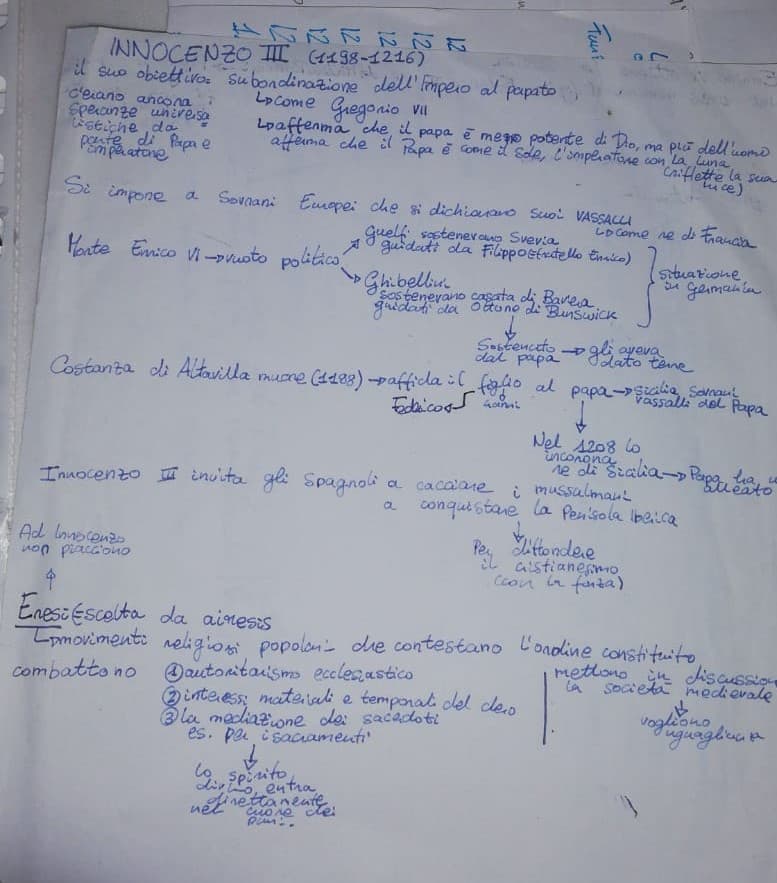 INNOCENZO III (1198-1216)
il suo obiettivo: subordinazione dell'Impero al papato
c'erano ancora speranze universa
listiche da
parte di Papa e
imperatore
↳come Gregorio VII
↳afferma che il papa è meno potente di Dio, ma più dell'uomo
afferma che il Papa è come il sole, l'imperatore con la Luna
(riflette la sua
luce)
Si impone a Sovrani Europei che si dichiarano suoi VASSALLI
↳come re di Francia
Morte Enrico VI → vuoto politico
Guelfi sostenevano Svevia
guidati da Filippo (fratello Enrico)
Ghibellini
sostenevano casata di Baviera
guidati da Ottone di Bunswick
situazione
in Germania
Sostenuto
dal papa → gli aveva
dato terre
Costanza di Altavilla muore (1198) → affida il figlio al papa → Sicilia sovrani
vassalli del Papa
Federico
Nel 1208 lo
incorona
re di Sicilia → Papa ha
alleato
Innocenzo III invita gli Spagnoli a cacciare i mussulmani
a conquistare la Penisola Iberica
Per diffondere
il cristianesimo
(con la forza)
Ad Innocenzo
non piacciono
Eresie scelta da airesis
↳movimenti religiosi popolari che contestano l'ordine constituito
combattono
① autoritarismo ecclesiastico
② interessi materiali e temporali del clero
③ la mediazione dei sacedoti
es. per i sacramenti
lo spirito
divino entra
direttamente
nel cuore dei
mettono in discussion
la società medievale
vogliono